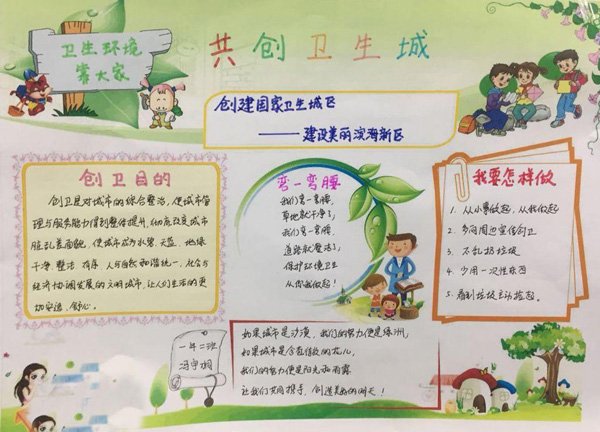 共创卫生城
卫生环境
靠大家
创建国家卫生城区
——建设美丽滨海新区
创卫目的
创卫是对城市的综合整治,使城市管
理与服务能力得到整体提升,彻底改变城市
脏乱差面貌,使城市成为水碧、天蓝、地绿
干净、整洁、有序、人与自然和谐统一,社会与
经济协调发展的文明城市,让人们生活的更
加安适、舒心。
弯一弯腰
我们弯一弯腰,
草地就干净了;
我们弯一弯腰,
道路就整洁了;
保护环境卫生
从你我做起!
我要怎样做
1. 从小事做起,从我做起
2. 多向周边宣传创卫
3. 不乱扔垃圾
4. 少用一次性东西
5. 看到垃圾主动捡起。
一年二班
如果城市是沙漠,我们的努力便是绿洲,
如果城市是含苞待放的花儿,
我们的努力便是阳光和雨露
让我们共同携手,创造美好的明天!